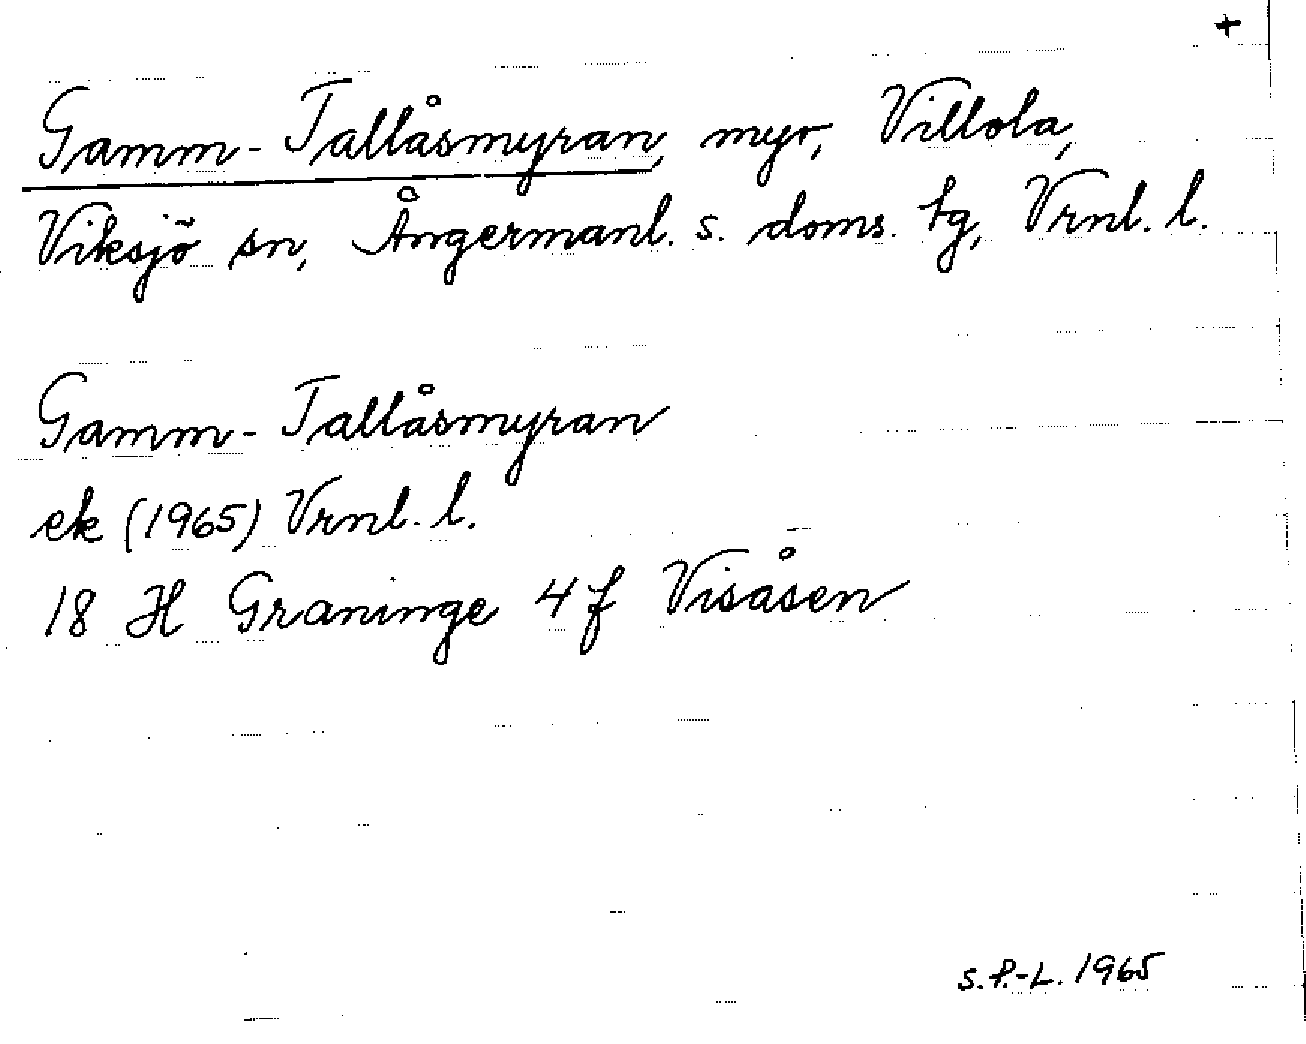 +
Gamm-Tallåsmyran, myr, Villola,
Viksjö sn, Ångermanl. s. doms. tg, Vrnl. l.
Gamm-Tallåsmyran
ek (1965) Vrnl. l.
18 H Graninge 4 f Visåsen
S.P.-L. 1965